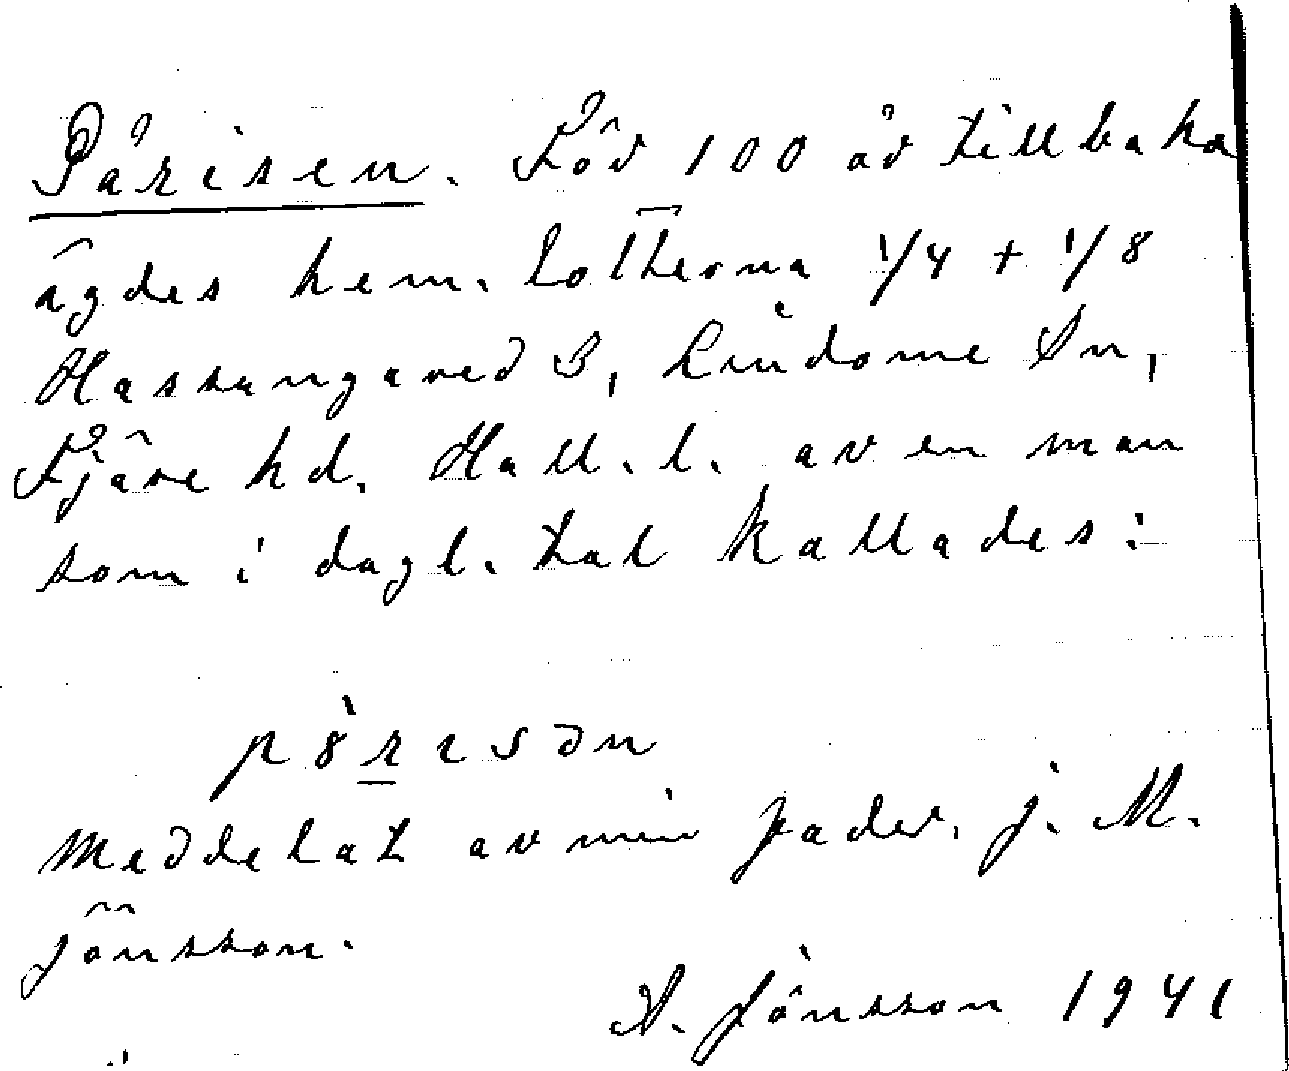 Pårisen. För 100 år tillbaka
ägdes hem. lotterna 1/4 + 1/8
Hassungared 3, Lindome Sn,
Fjäre hd. Hall. l. av en man
som i dagl. tal kallades:
pò̀rɩsən
Meddelat av min fader. J. M.
Jönsson.
A. Jönsson 1941